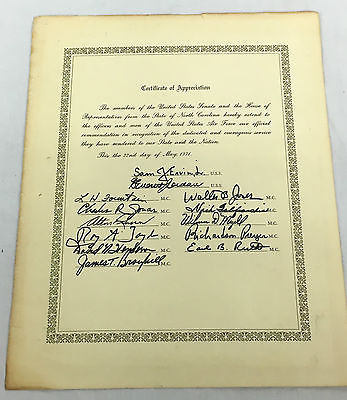 Certificate of Appreciation
The members of the United States Senate and the House of
Representatives from the State of North Carolina hereby extend to
the officers and men of the United States Air Force our official
commendation in recognition of the dedicated and courageous service
they have rendered to our State and the Nation.
This the 22nd day of May, 1971.
Sam J. Ervin, Jr. U.S.S.
B. Everett Jordan U.S.S.
L. H. Fountain M.C. Walter B. Jones M.C.
Charles R. Jonas M.C. Nick Galifianakis M.C.
Alton Lennon M.C. Wilmer D. Mizell M.C.
Roy A. Taylor M.C. Richardson Preyer M.C.
David N. Henderson M.C. Earl B. Ruth M.C.
James T. Broyhill M.C.